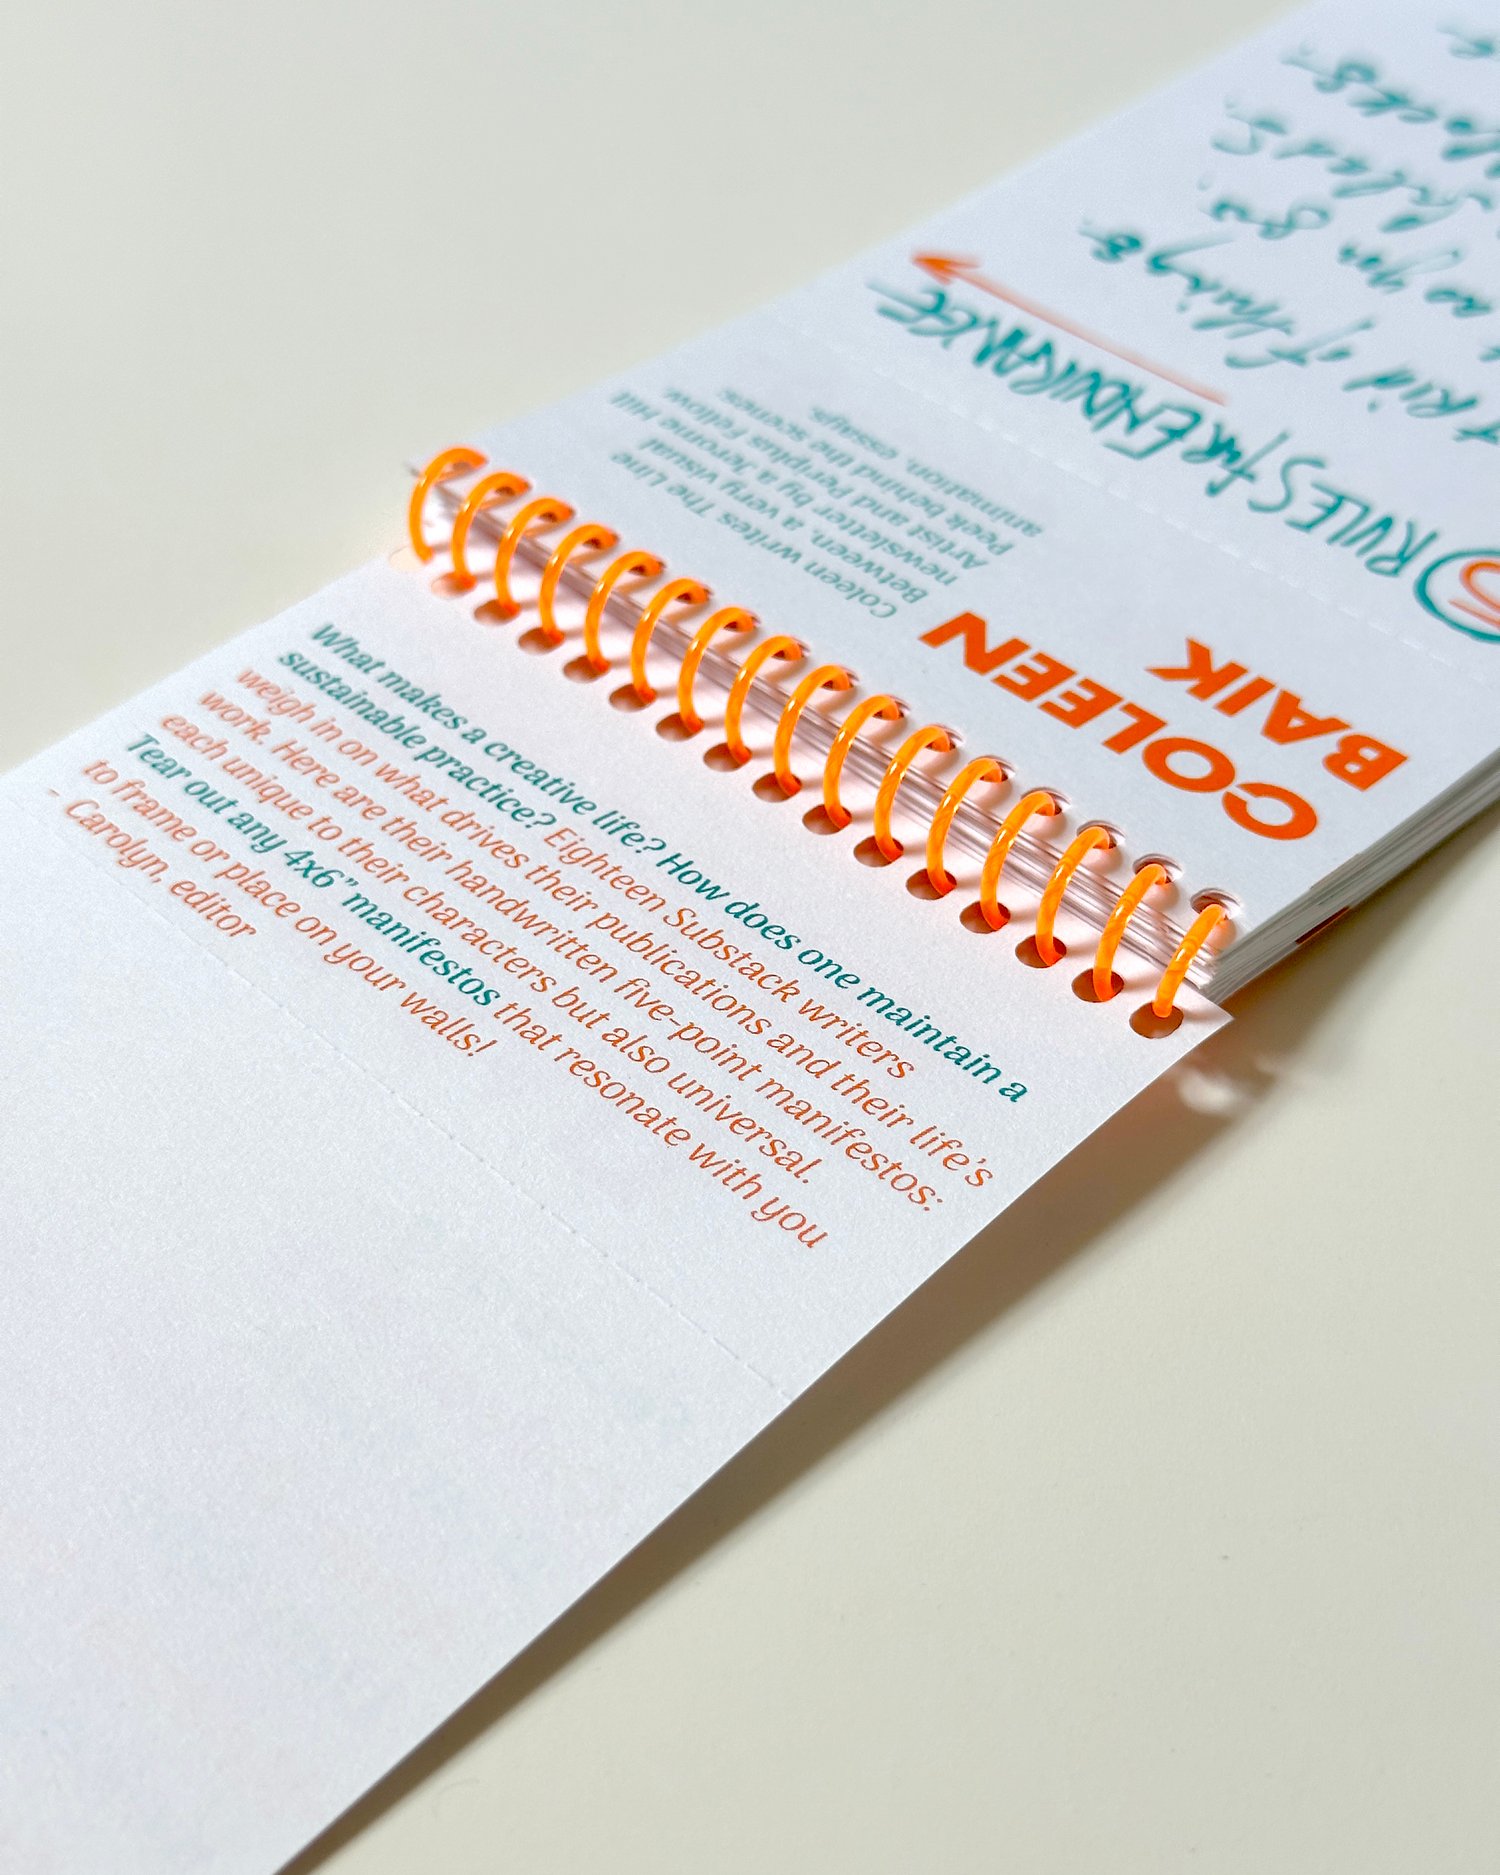 What makes a creative life? How does one maintain a
sustainable practice? Eighteen Substack writers
weigh in on what drives their publications and their life's
work. Here are their handwritten five-point manifestos:
each unique to their characters but also universal.
Tear out any 4x6” manifestos that resonate with you
to frame or place on your walls!
- Carolyn, editor
COLEEN
BAIK
Coleen writes The Line
Between, a very visual
newsletter by a Jerome Hill
Artist and Periplus Fellow.
Peek behind the scenes:
animation, essays.
5 RULES FOR ENDURANCE
rid of things
so you go.